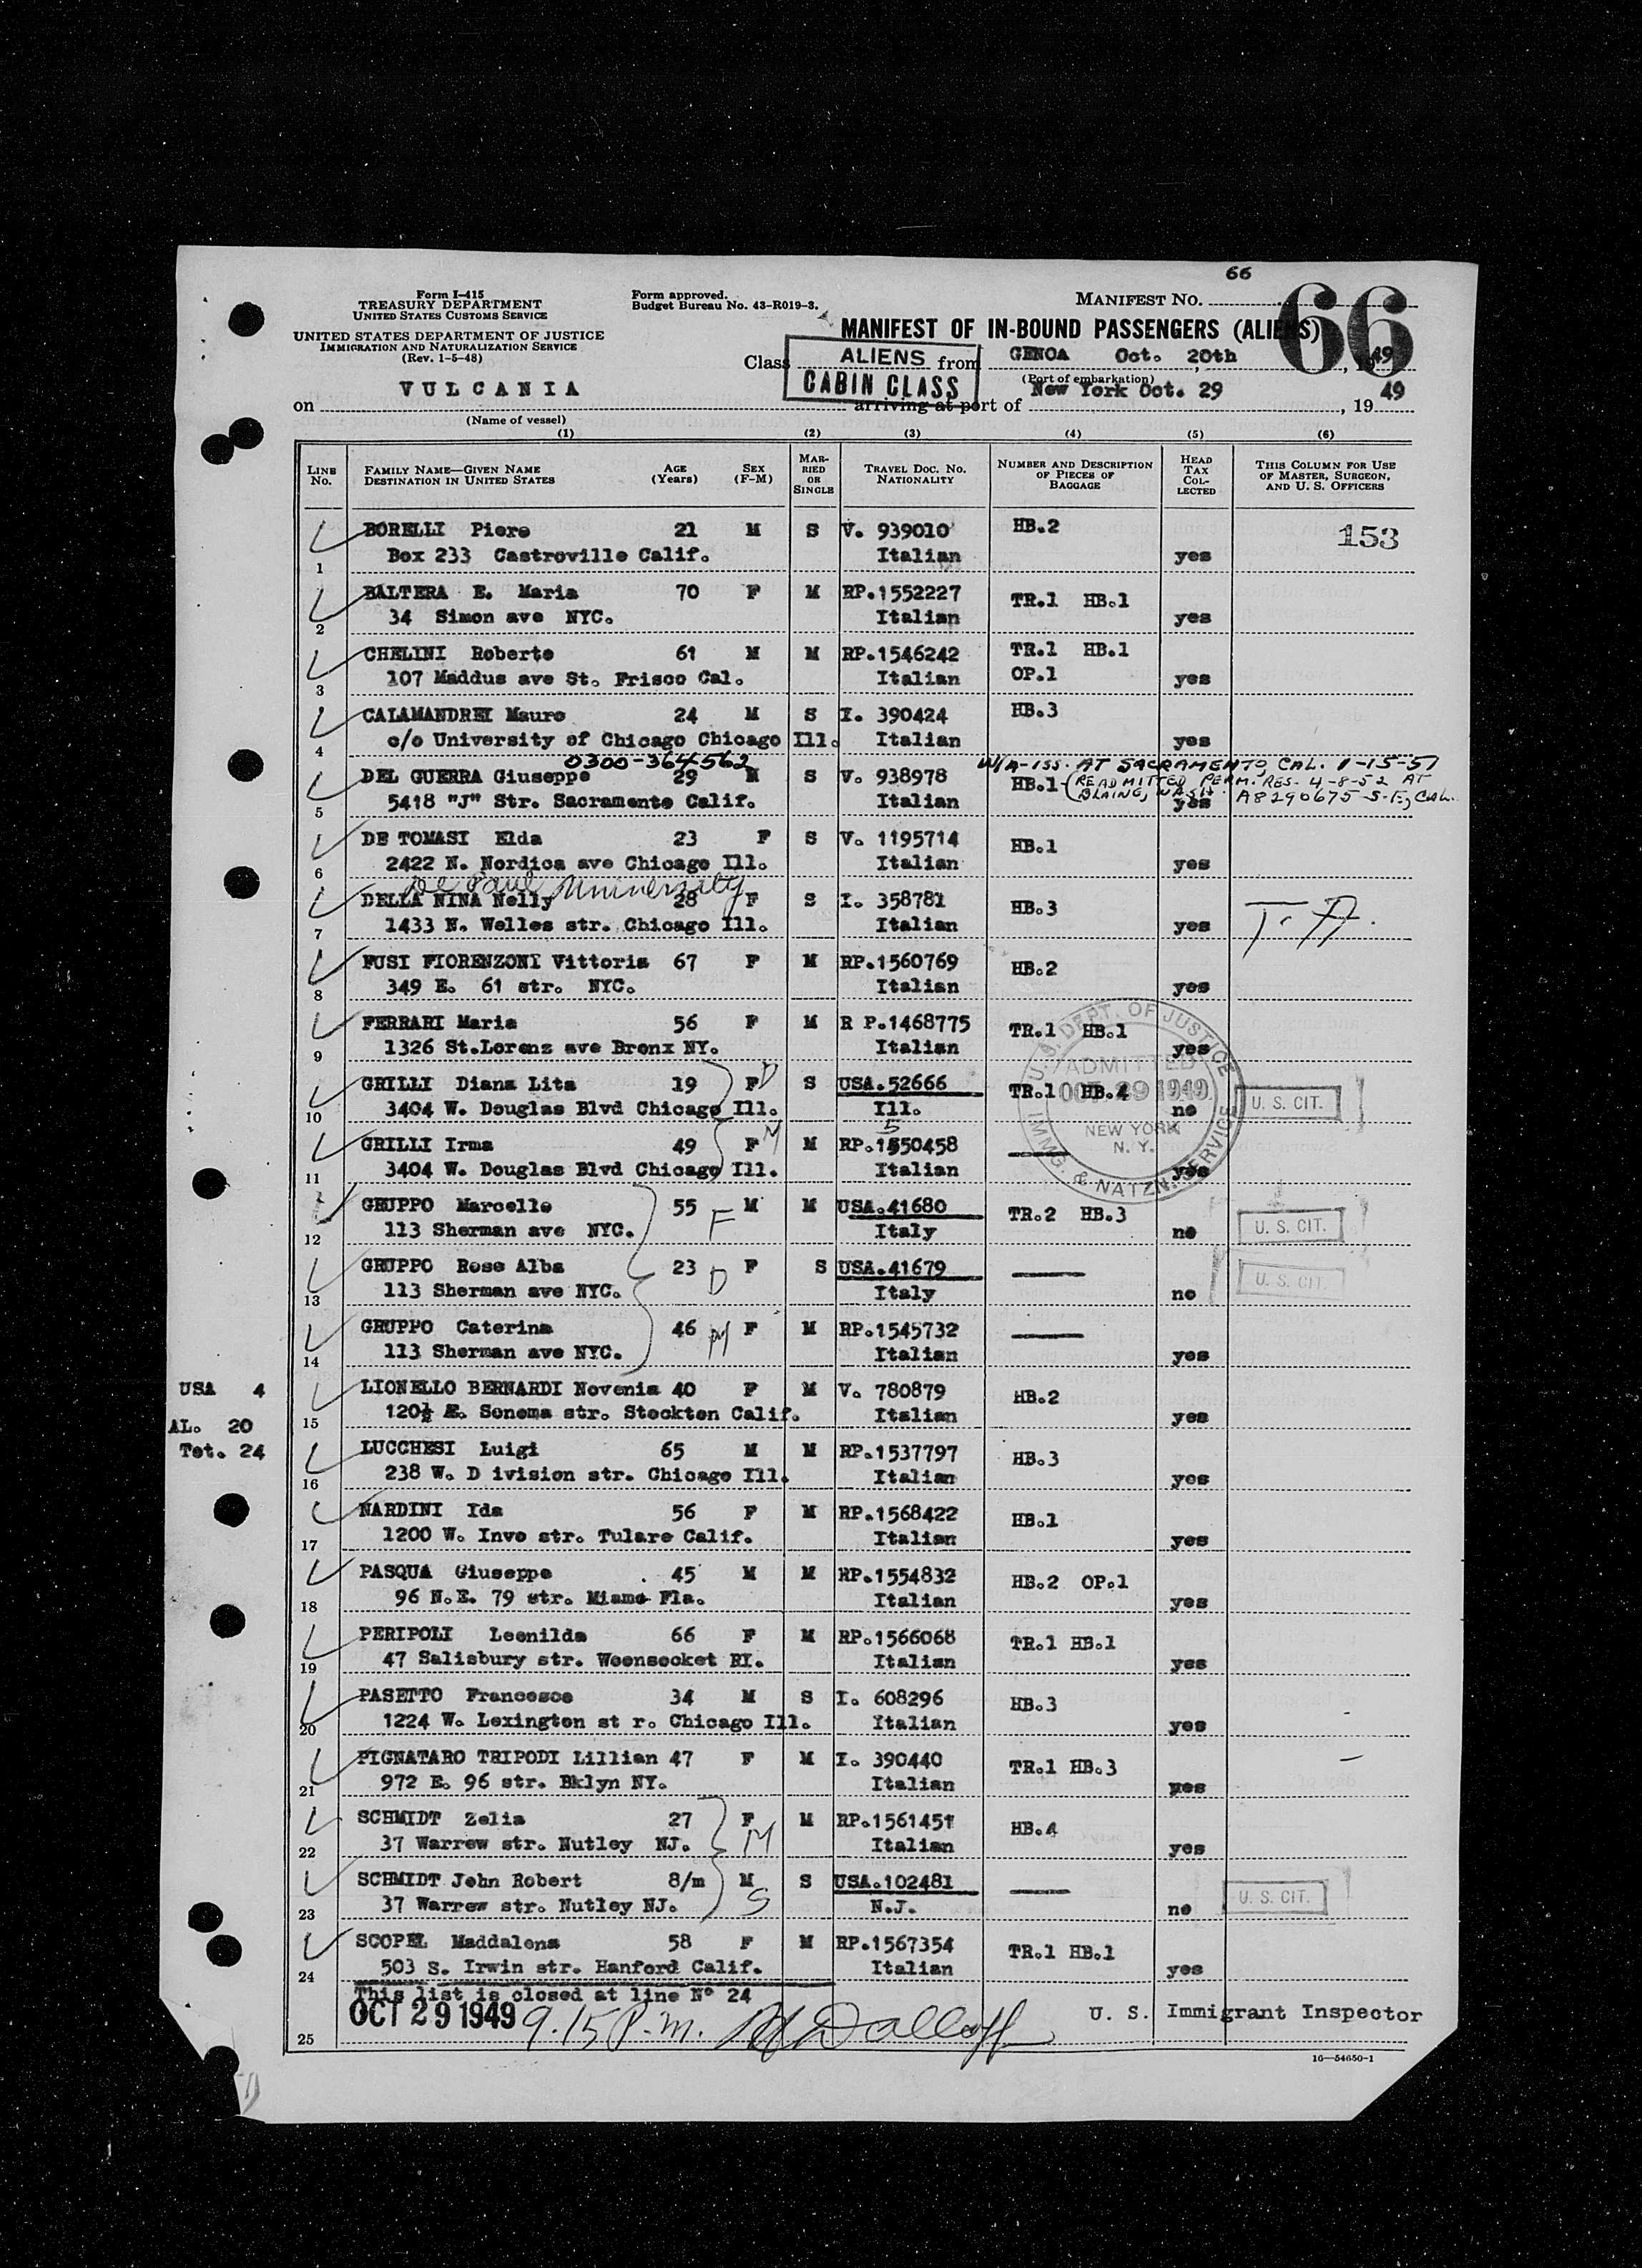 66
Form I-415
TREASURY DEPARTMENT
UNITED STATES CUSTOMS SERVICE
UNITED STATES DEPARTMENT OF JUSTICE
IMMIGRATION AND NATURALIZATION SERVICE
(Rev. 1-5-48)
Form approved.
Budget Bureau No. 43-R019-3.
MANIFEST NO.
66
MANIFEST OF IN-BOUND PASSENGERS (ALIENS)
Class ALIENS from GENOA Oct. 20th, 1949
CABIN CLASS
(Port of embarkation)
on VULCANIA arriving at port of New York Oct. 29, 19 49
(Name of vessel)
(1) (2) (3) (4) (5) (6)
LINE No. FAMILY NAME—GIVEN NAME DESTINATION IN UNITED STATES AGE (Years) SEX (F-M) MARRIED OR SINGLE TRAVEL DOC. NO. NATIONALITY NUMBER AND DESCRIPTION OF PIECES OF BAGGAGE HEAD TAX COLLECTED THIS COLUMN FOR USE OF MASTER, SURGEON, AND U. S. OFFICERS
BORELLI Piero 21 M S V. 939010 HB.2 153
1 Box 233 Castroville Calif. Italian yes
BALTERA E. Maria 70 F M RP.1552227 TR.1 HB.1
2 34 Simon ave NYC. Italian yes
CHELINI Roberto 61 M M RP.1546242 TR.1 HB.1
3 107 Maddus ave St. Frisco Cal. Italian OP.1 yes
CALAMANDREI Mauro 24 M S I. 390424 HB.3
4 c/o University of Chicago Chicago Ill. Italian yes
0300-364562 W/A-ISS. AT SACRAMENTO, CAL. 1-15-57
DEL GUERRA Giuseppe 29 M S V. 938978 HB.1 (READMITTED PERM. RES. 4-8-52 AT
5 5418 "J" Str. Sacramento Calif. Italian BLAINE, WASH. yes A8290675 S.F., CAL.
DE TOMASI Elda 23 F S V. 1195714 HB.1
6 2422 N. Nordica ave Chicago Ill. Italian yes
De Paul University
DELLA NINA Nelly 28 F S I. 358781 HB.3
7 1433 N. Welles str. Chicago Ill. Italian yes
FUSI FIORENZONI Vittoria 67 F M RP.1560769 HB.2
8 349 E. 61 str. NYC. Italian yes
FERRARI Maria 56 F M R P.1468775 TR.1 HB.1
9 1326 St.Lorenz ave Bronx NY. Italian yes
U. S. DEPT. OF JUSTICE
ADMITTED
OCT 29 1949
NEW YORK
N. Y.
IMMG. & NATZN. SERVICE
GRILLI Diana Lita 19 F D S USA.52666 TR.1 HB.4
10 3404 W. Douglas Blvd Chicago Ill. Ill. no U. S. CIT.
5
GRILLI Irma 49 F M M RP.1550458
11 3404 W. Douglas Blvd Chicago Ill. Italian yes
GRUPPO Marcello 55 F M M USA.41680 TR.2 HB.3
12 113 Sherman ave NYC. Italy no U. S. CIT.
GRUPPO Rosa Alba 23 D F S USA.41679
13 113 Sherman ave NYC. Italy no U. S. CIT.
GRUPPO Caterina 46 M F M RP.1545732
14 113 Sherman ave NYC. Italian yes
USA 4
AL. 20
Tot. 24
LIONELLO BERNARDI Novenia 40 F M V. 780879 HB.2
15 120½ E. Sonoma str. Stockton Calif. Italian yes
LUCCHESI Luigi 65 M M RP.1537797 HB.3
16 238 W. D ivision str. Chicago Ill. Italian yes
NARDINI Ida 56 F M RP.1568422 HB.1
17 1200 W. Invo str. Tulare Calif. Italian yes
PASQUA Giuseppe 45 M M RP.1554832 HB.2 OP.1
18 96 N.E. 79 str. Miamo Fla. Italian yes
PERIPOLI Leonilda 66 F M RP.1566068 TR.1 HB.1
19 47 Salisbury str. Woonsocket RI. Italian yes
PASETTO Francesco 34 M S I. 608296 HB.3
20 1224 W. Lexington st r. Chicago Ill. Italian yes
PIGNATARO TRIPODI Lillian 47 F M I. 390440 TR.1 HB.3
21 972 E. 96 str. Bklyn NY. Italian yes
SCHMIDT Zelia 27 F M M RP.1561451 HB.4
22 37 Warrew str. Nutley NJ. Italian yes
SCHMIDT John Robert 8/m M S S USA.102481
23 37 Warrew str. Nutley NJ. N.J. no U. S. CIT.
SCOPEL Maddalena 58 F M RP.1567354 TR.1 HB.1
24 503 S. Irwin str. Hanford Calif. Italian yes
This list is closed at line N° 24
25 OCT 29 1949 9.15 P.m. U. S. Immigrant Inspector
16—54650-1